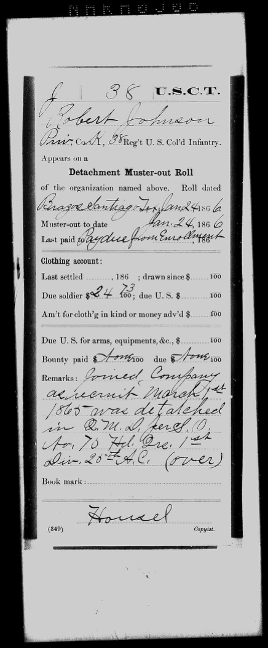 J 38 U.S.C.T.
Robert Johnson
Priv., Co. K, 38 Reg't U. S. Col'd Infantry.
Appears on a
Detachment Muster-out Roll
of the organization named above. Roll dated
Brazos Santiago Tex Jan 24 1866
Muster-out to date Jan. 24, 1866
Last paid to Paydue from Enrollment, 186
Clothing account:
Last settled , 186 ; drawn since $ 100
Due soldier $ 24 73/100; due U. S. $ 100
Am't for cloth'g in kind or money adv'd $ 100
Due U. S. for arms, equipments, &c., $ 100
Bounty paid $ None 100 due $ None 100
Remarks: Joined Company
as recruit March 1st
1865 was detatched
in Q. M. D. per S. O.
No. 70 Hd. Qrs. 1st
Div. 25th A.C. (over)
Book mark:
Housel
(349) Copyist.